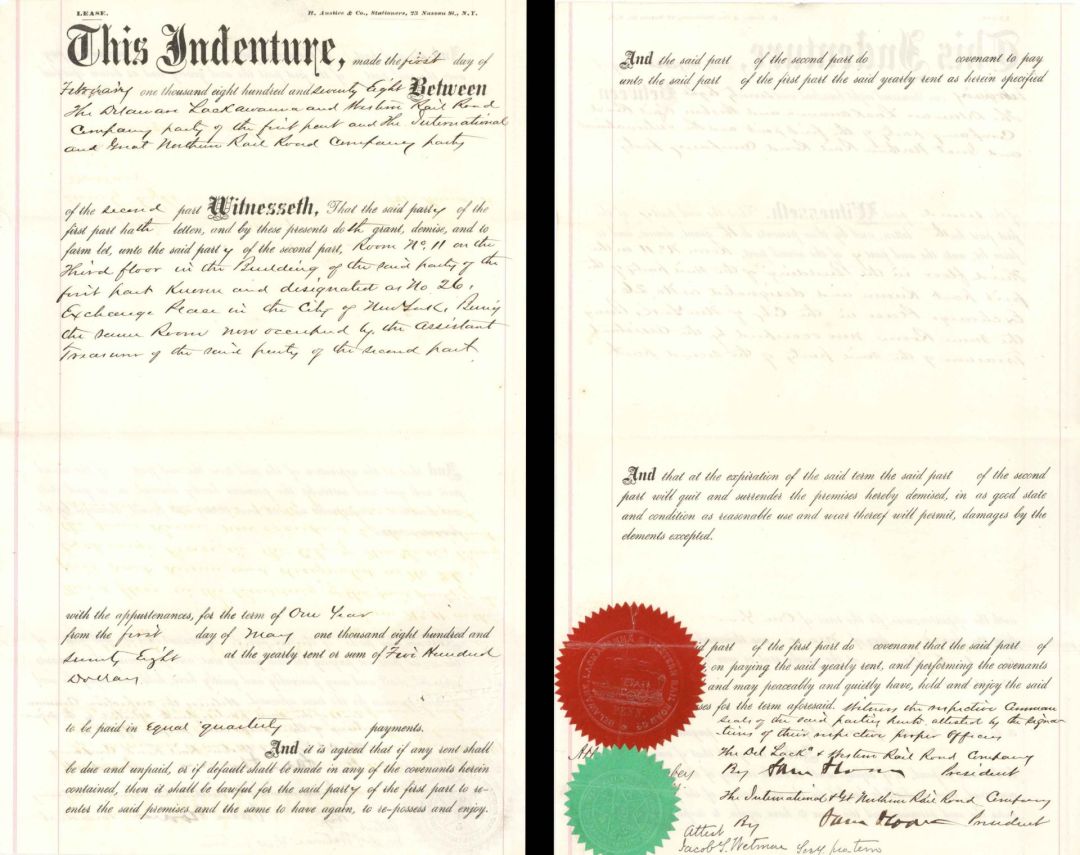 LEASE. H. Austice & Co., Stationers, 23 Nassau St., N.Y.
This Indenture, made the first day of
February one thousand eight hundred and seventy Eight Between
The Delaware Lackawanna and Western Rail Road
Company party of the first part and The International
and Great Northern Rail Road Company party
of the second part Witnesseth, That the said party of the
first part hath letten, and by these presents doth grant, demise, and to
farm let, unto the said party of the second part, Room No. 11 on the
Third floor in the Building of the said party of the
first part Known and designated as No 26,
Exchange Place in the City of New York, Being
the same Room now occupied by the Assistant
Treasurer of the said party of the second part
with the appurtenances, for the term of One Year
from the first day of May one thousand eight hundred and
seventy Eight at the yearly rent or sum of Five Hundred
Dollars
to be paid in Equal quarterly payments.
And it is agreed that if any rent shall
be due and unpaid, or if default shall be made in any of the covenants herein
contained, then it shall be lawful for the said party of the first part to re-
enter the said premises and the same to have again, to re-possess and enjoy.
And the said part of the second part do covenant to pay
unto the said part of the first part the said yearly rent as herein specified
And that at the expiration of the said term the said part of the second
part will quit and surrender the premises hereby demised, in as good state
and condition as reasonable use and wear thereof will permit, damages by the
elements excepted.
part of the first part do covenant that the said part of
on paying the said yearly rent, and performing the covenants
and may peaceably and quietly have, hold and enjoy the said
for the term aforesaid. Witness the respective Common
Seals of the said parties hereto attested by the signa-
tures of their respective proper Officers
The Del Lack^a & Western Rail Road Company
By Sam Sloan President
The International & Gt Northern Rail Road Company
By Sam Sloan President
Attest
Jacob S. Wetmore Secy